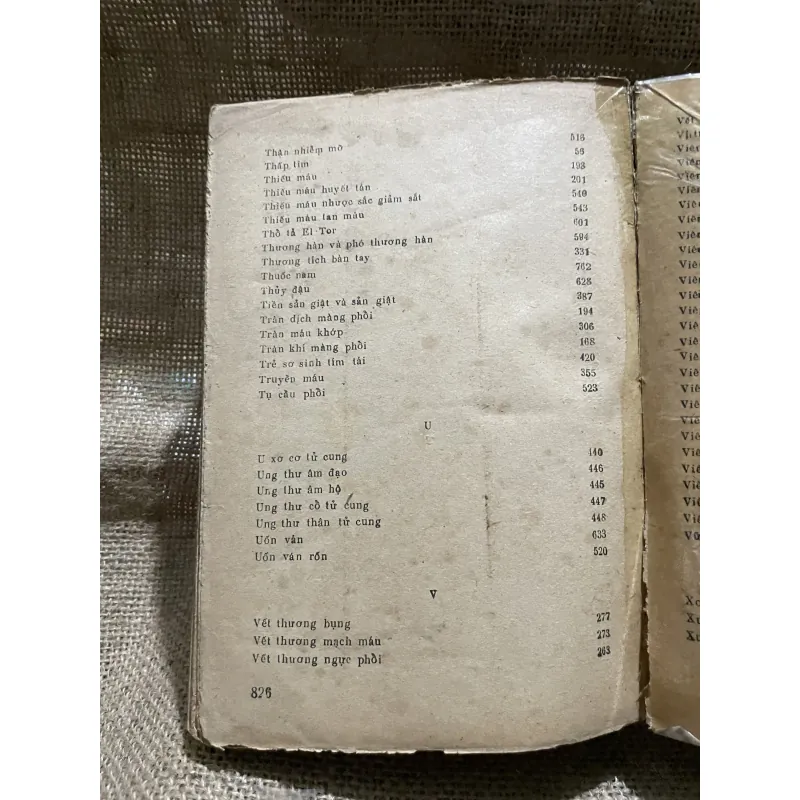 Thận nhiễm mỡ 516
Thấp tim 56
Thiếu máu 193
Thiếu máu huyết tán 201
Thiếu máu nhược sắc giảm sắt 540
Thiếu máu tan máu 543
Thổ tả El-Tor 601
Thương hàn và phó thương hàn 594
Thương tích bàn tay 331
Thuốc nam 762
Thủy đậu 628
Tiền sản giật và sản giật 387
Tràn dịch màng phổi 194
Tràn máu khớp 306
Tràn khí màng phổi 168
Trẻ sơ sinh tím tái 420
Truyền máu 355
Tụ cầu phổi 523
U
U xơ cơ tử cung 440
Ung thư âm đạo 446
Ung thư âm hộ 445
Ung thư cổ tử cung 447
Ung thư thân tử cung 448
Uốn ván 633
Uốn ván rốn 520
V
Vết thương bụng 277
Vết thương mạch máu 273
Vết thương ngực phổi 263
826